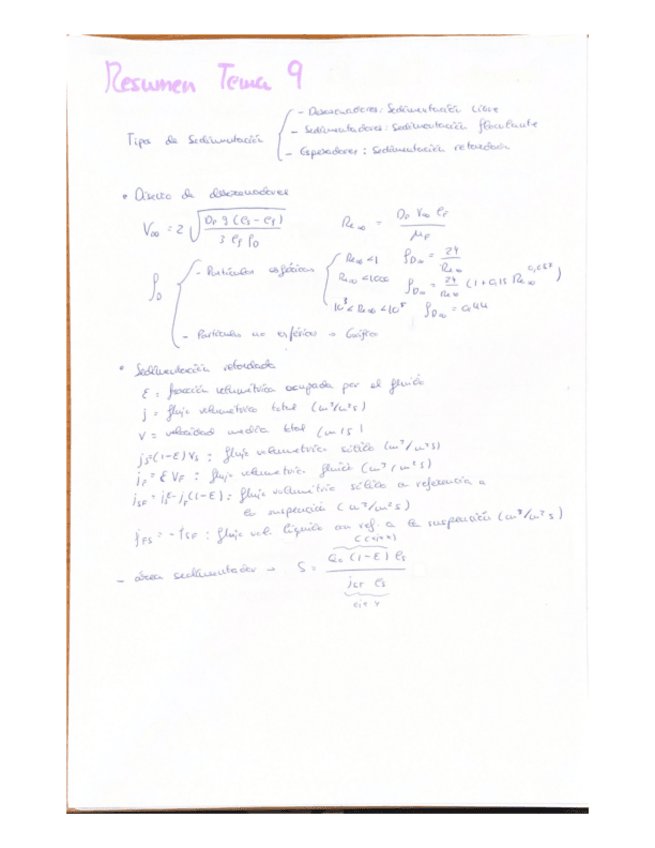 Resumen Tema 9
Tipos de Sedimentación
- Desarenadores: Sedimentación libre
- Sedimentadores: Sedimentación floculante
- Espesadores: Sedimentación retardada
• Diseño de desarenadores
V∞ = 2 √(Dp g (ρs - ρf) / 3 ρf ρD)
Re∞ = Dp V∞ ρf / μF
ρD
- Partículas esféricas
Re∞ < 1 ρD∞ = 24/Re∞
Re∞ < 1000 ρD∞ = 24/Re∞ (1 + 0,15 Re∞^0,687)
10³ < Re∞ < 10⁵ ρD∞ = 0,44
- Partículas no esféricas → Gráfica
• Sedimentación retardada
ε = fracción volumétrica ocupada por el fluido
j = flujo volumétrico total (m³/m²s)
V = velocidad media total (m/s)
js = (1-ε) Vs : flujo volumétrico sólido (m³/m²s)
jF = ε VF : flujo volumétrico fluido (m³/m²s)
jSF = jsε - jF(1-ε) : flujo volumétrico sólido a referencia a
la suspensión (m³/m²s)
jFS = -jSF : flujo vol. líquido con ref. a la suspensión (m³/m²s)
- área sedimentador → S = Q0 (1-ε) ρs / jSF ρs
C (eje x)
eje y